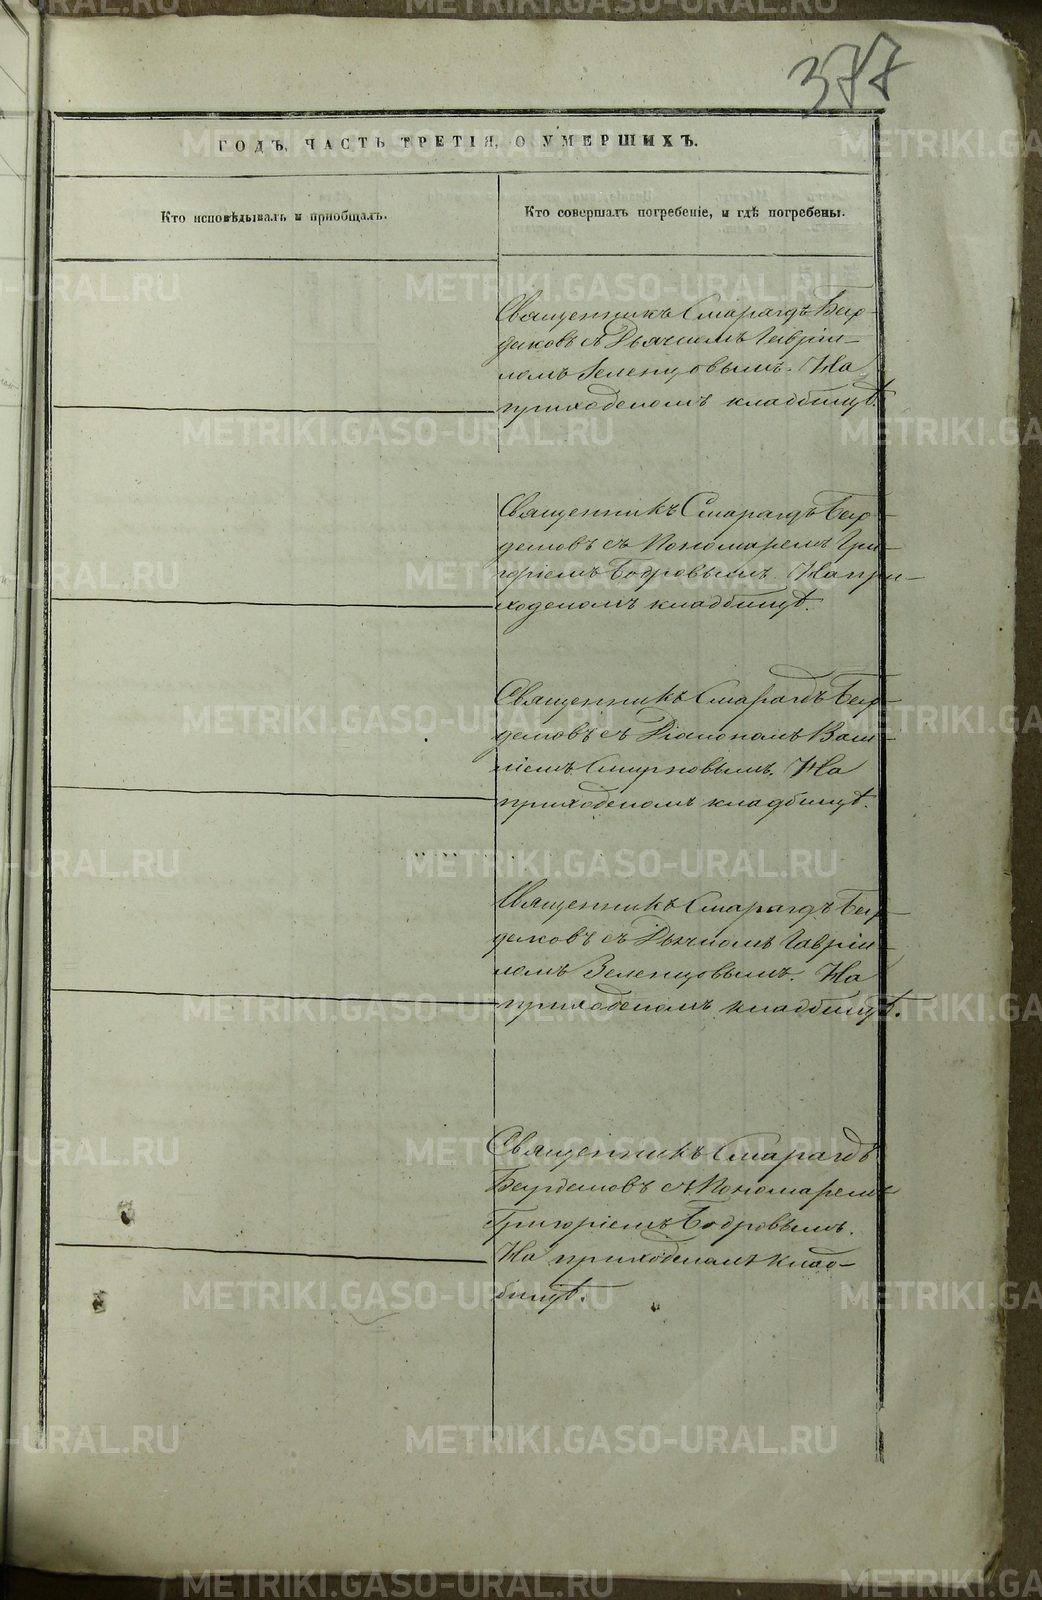 377
ГОДЪ, ЧАСТЬ ТРЕТІЯ, О УМЕРШИХЪ.
Кто исповѣдывалъ и пріобщалъ.
Кто совершалъ погребеніе, и гдѣ погребены.
Священникъ Смарагдъ Бир-
дюковъ с Дьячкомъ Гавріи-
ломъ Зеленцовымъ. На
приходскомъ кладбищѣ.
Священникъ Смарагдъ
съ Пономаремъ Гри-
горіемъ Бобровымъ. На при-
ходскомъ кладбищѣ.
Священникъ Смарагдъ
съ Діакономъ Васи-
ліемъ Смирновымъ. На
приходскомъ кладбищѣ.
Священникъ Смарагдъ
съ Дьячкомъ Гавріи-
ломъ Зеленцовымъ. На
приходскомъ кладбищѣ.
Священникъ Смарагдъ
с Пономаремъ
Григоріемъ Бобровымъ.
На приходскомъ клад-
бищѣ.
METRIKI.GASO-URAL.RU